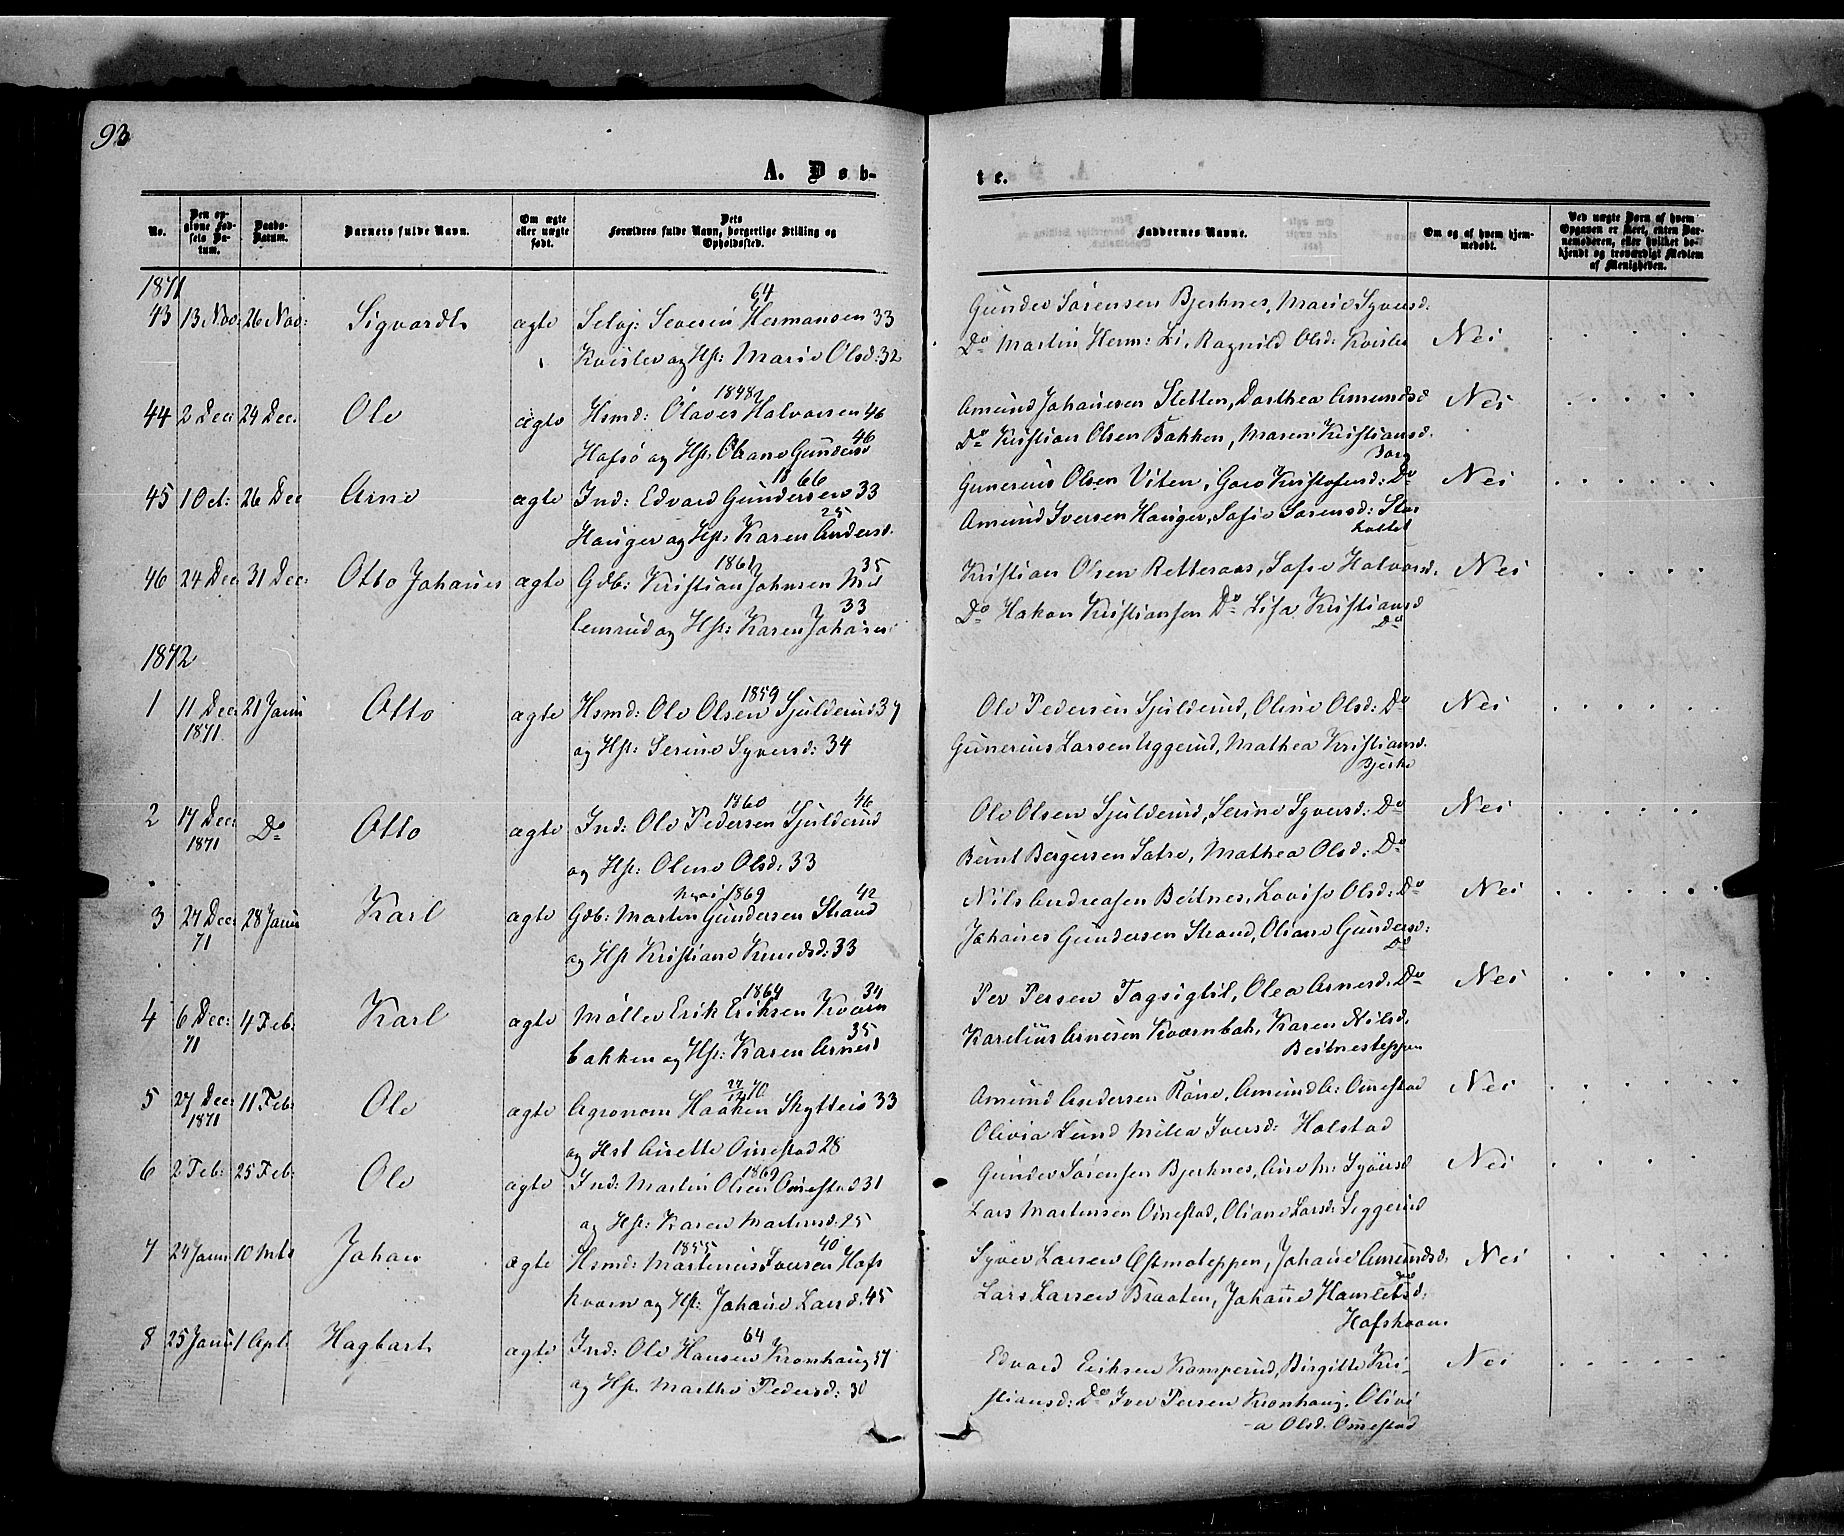 93
A. Døb-
te.
No. | Den opgivne Fødsels Datum. | Daabs-Datum. | Barnets fulde Navn. | Om ægte eller uægte født. | Forældres fulde Navn, borgerlige Stilling og Opholdssted. | Faddernes Navne. | Om og af hvem hjemmedøbt. | Ved uægte Børn af hvem Opgaven er skeet, enten Barnemoderen, eller hvilket bekjendt og troværdigt Medlem af Menigheden.
1871
64
43 13 Nov: 26 Nov: Sigvardt ægte Selvj: Severin Hermansen 33 Gunder Sørensen Bjerknes, Marie Syversd.
Kvisler og Hst: Marie Olsd: 32 Do Martin Herm: Li, Ragnild Olsd: Kvisler Nei
1848
44 2 Dec: 24 Dec. Ole ægte Hsmd: Olaves Halvorsen 46 Amund Johanesen Sletten, Dorthea Amundsd Nei
Hofsø og Hst: Oliane Gundersd 46 Do Kristian Olsen Bakken, Maren Kristiansd.
Borg
1866
45 1 Oct: 26 Dec Arne ægte Ind: Edvard Gundersen 33 Gunerius Olsen Viten, Goro Kristofersd: Do Nei
Hauger og Hst: Karen Andersd. 25 Amund Iversen Hauger, Sofie Sørensd: Slot
kollet
1861
46 24 Dec 31 Dec: Otto Johanes ægte Gdb: Kristian Johnsen Mel 35 Kristian Olsen Retteraas, Sofie Halvorsd. Nei
lemaud og Hst: Karen Johanes: 33 Do Hakon Kristiansen Do Lisa Kristiansd
Do
1872
1859
1 11 Dec: 1871 21 Janu Otto ægte Hsmd: Ole Olsen Sjulderud 37 Ole Pedersen Sjulderud, Oline Olsd: Do Nei
og Hst: Serine Syversd: 34 Gunerius Larsen Uggerud, Mathea Kristiansd.
Bjerke
1860
2 17 Dec: 1871 Do Otto ægte Ind: Ole Pedersen Sjulderud 46 Ole Olsen Sjulderud, Serine Syversd: Do Nei
og Hst: Oline Olsd: 33 Bernt Bergersen Sætre, Mathea Olsd: Do
1869
3 27 Dec: 71 28 Janu Karl ægte Gdb: Martin Gundersen Strand 42 Nils Andreasen Beitnes, Lovise Olsd: Do Nei
og Hst Kristiane Knudsd: 33 Johanes Gundersen Strand, Oliane Gundersd:
Do
1864
4 6 Dec: 71 4 Feb: Karl ægte Møller Erik Eriksen Kværn 34 Per Persen Tagsigtil, Olea Arnesd. Do Nei
bakken og Hst: Karen Arnesd 35 Karelius Arnesen Kværnbak, Karen Nilsd.
Beitnesteppen
27/12 70
5 27 Dec: 1871 11 Feb: Ole ægte Agronom Haaken Skytteis 33 Amund Andersen Røise, Amund A: Omestad Nei
og Hst Anette Omestad 28 Olivia Lund Milea Iversd: Holstad
1869
6 2 Feb: 25 Feb: Ole ægte Ind: Martin Olsen Omestad 31 Gunder Sørensen Bjerknes, Ane M: Syversd Nei
og Hst: Karen Martinsd. 25 Lars Martinsen Omestad, Oliane Larsd: Seggerud
1855
7 24 Janu 10 Mts Johan ægte Hsmd: Martinius Iversen Hofs 40 Syver Larsen Østmoteppen, Johane Amundsd. Nei
kværn og Hst: Johane Larsd. 45 Lars Larsen Braaten, Johane Hanselsd:
Hofskværn
64
8 25 Janu 1 Apl: Hagbart ægte Ind: Ole Hansen Kronhaug 37 Edvard Eriksen Kamperud, Birgitte Kri- Nei
og Hst. Marthe Pedersd: 30 stiansd: Do Iver Persen Kronhaug, Olivi
-a Olsd. Omestad